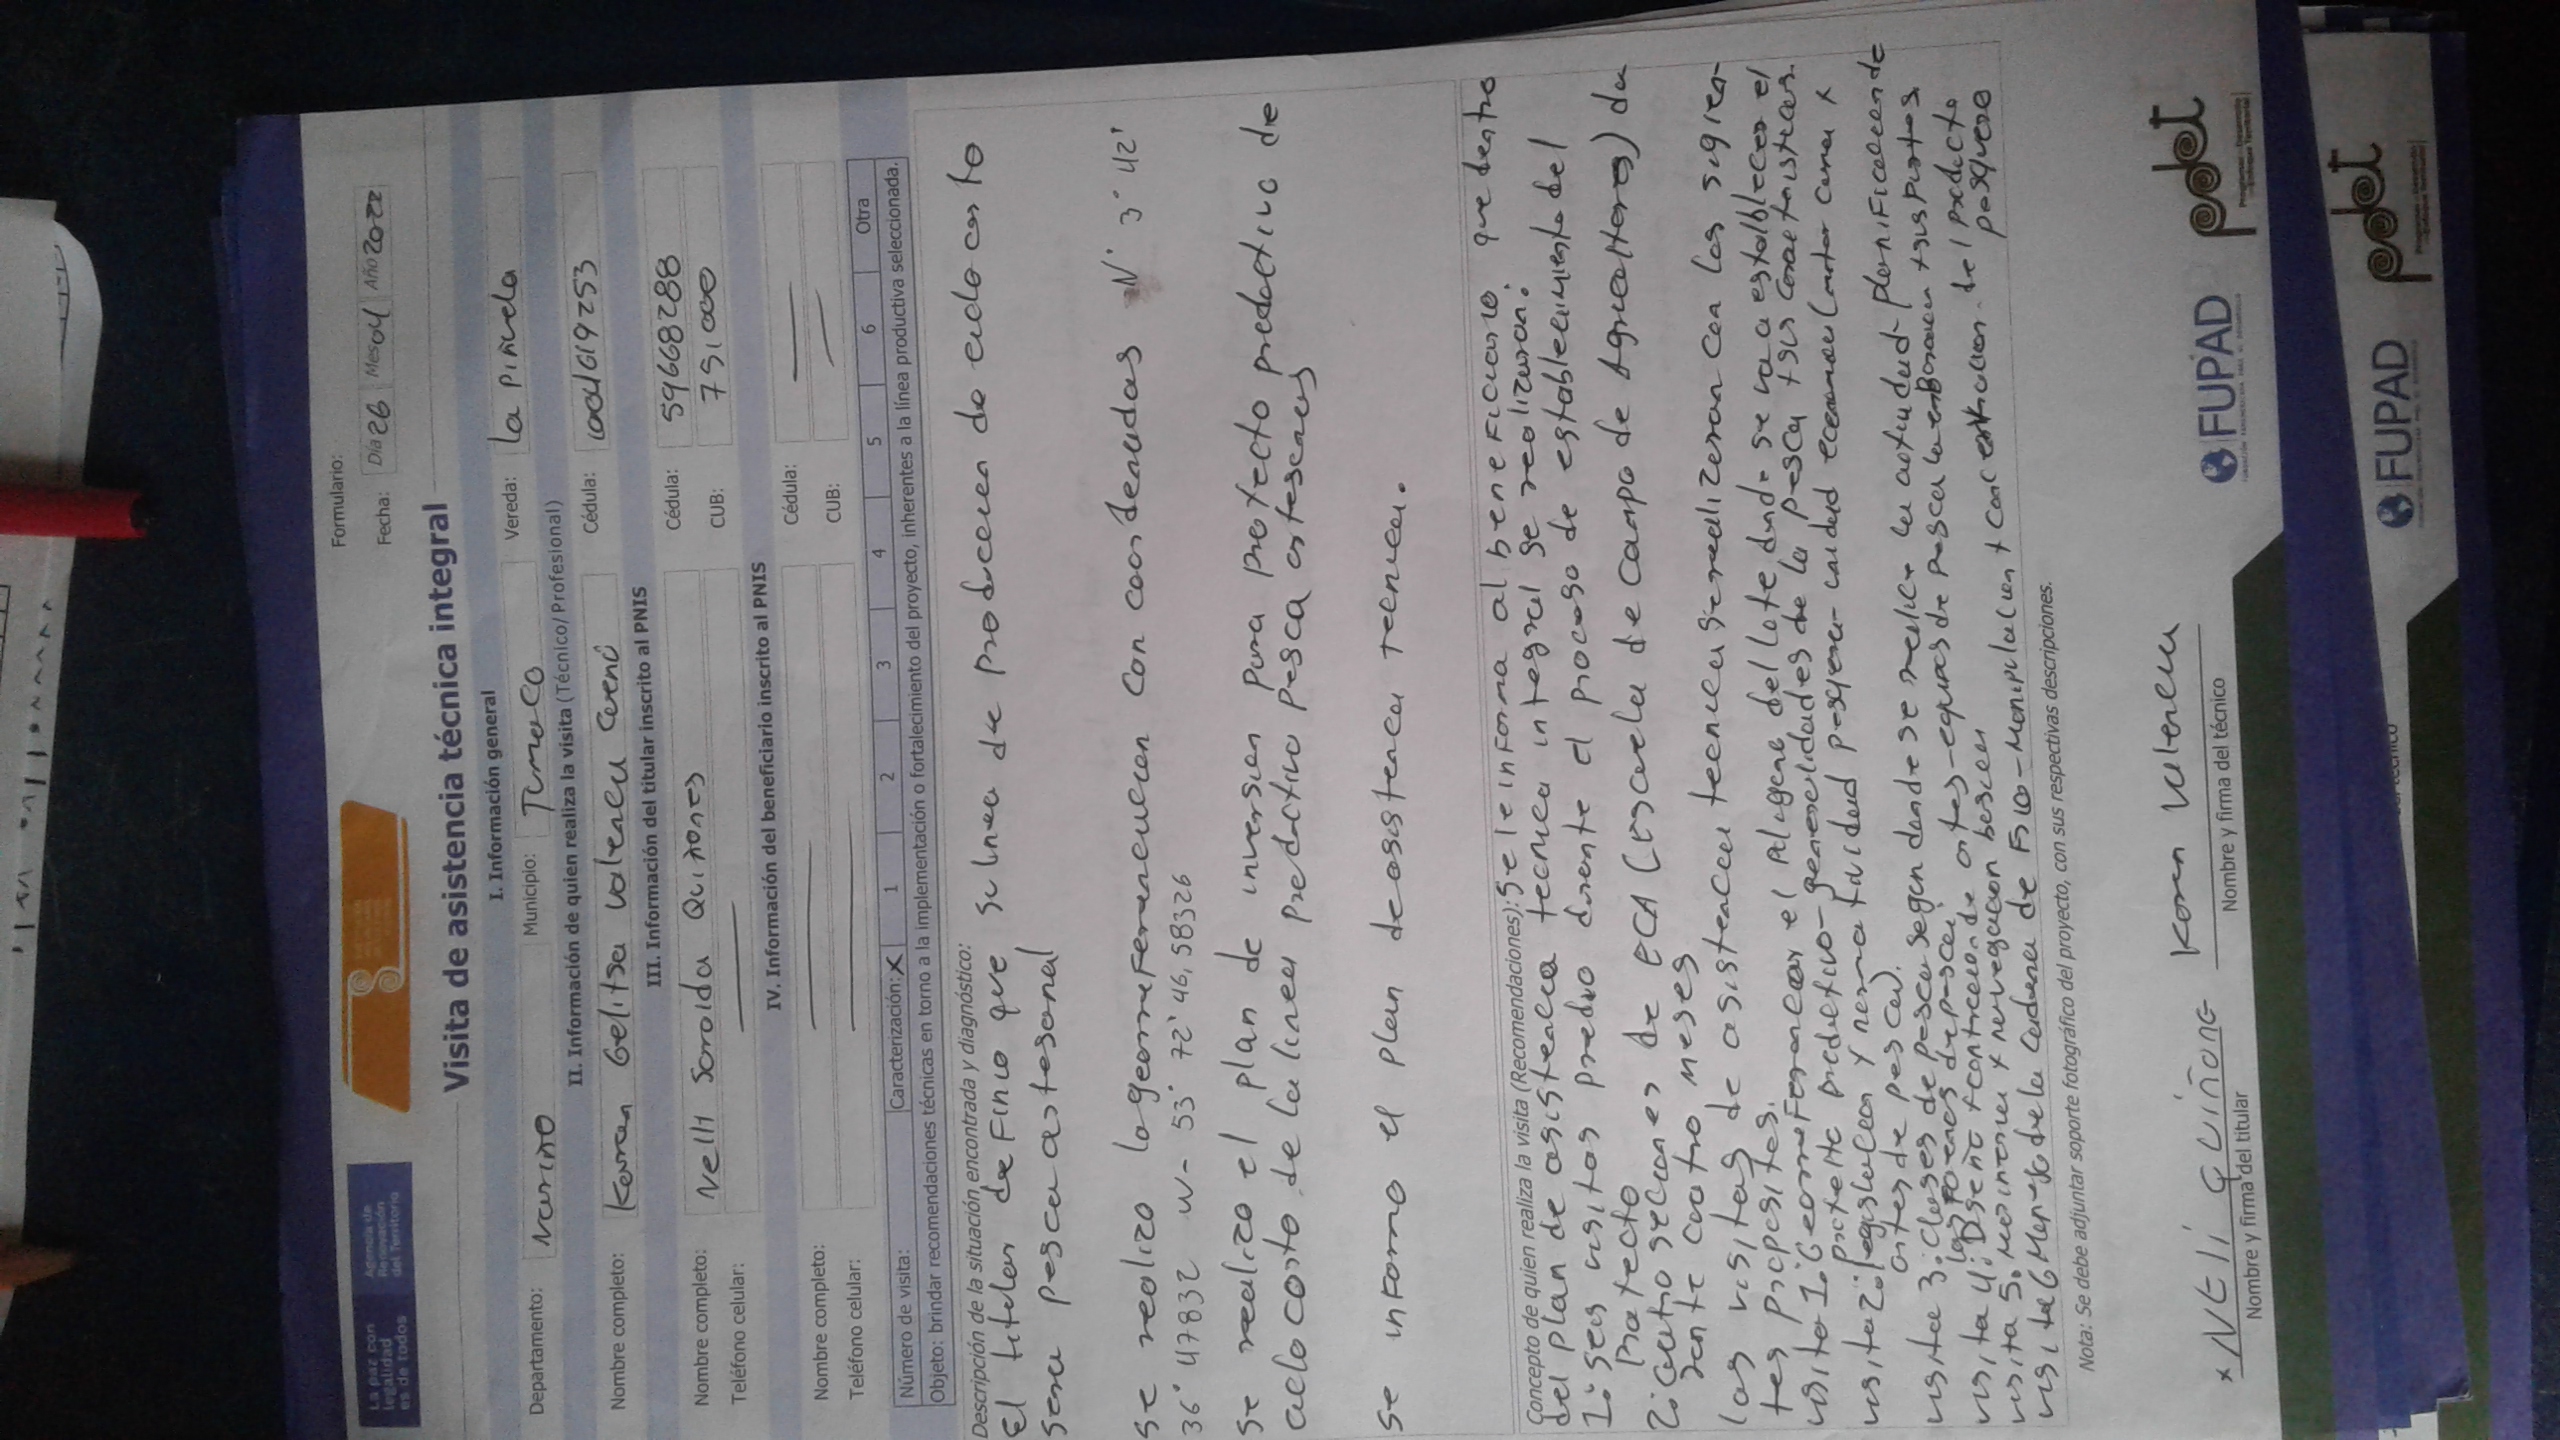 La paz con
legalidad
es de todos
Agencia de
Renovación
del Territorio
Formulario:
Fecha: Día 26 Mes 04 Año 2022
Visita de asistencia técnica integral
I. Información general
Departamento: Nariño Municipio: Tumaco Vereda: la Piñuela
II. Información de quien realiza la visita (Técnico/Profesional)
Nombre completo: Karen Gelitsa Valencia Cédula:
III. Información del titular inscrito al PNIS
Nombre completo: Nelli Sorraida Quiñones Cédula: 59668288
Teléfono celular: CUB: 751000
IV. Información del beneficiario inscrito al PNIS
Nombre completo: Cédula:
Teléfono celular: CUB:
Número de visita: Caracterización: X 1 2 3 4 5 6 Otra
Objeto: brindar recomendaciones técnicas en torno a la implementación o fortalecimiento del proyecto, inherentes a la línea productiva seleccionada.
Descripción de la situación encontrada y diagnóstico:
El titular definio que su linea de produccion de ciclo corto
sera pesca artesanal
se realizo la georreferenciacion con coordenadas N° 3° 42'
36" 47832 W- 53° 72' 46,58326
se realizo el plan de inversion para proyecto productivo de
ciclo corto de la linea productiva pesca artesanal
se informo el plan de asistencia tecnica.
Concepto de quien realiza la visita (Recomendaciones): se le informa al beneficiario que dentro
del plan de asistencia tecnica integral se realizaran:
1: seis visitas predio durante el proceso de establecimiento del
proyecto
2: cuatro secciones de ECA (escuela de campo de Agricultores) du
rante cuatro meses
las visitas de asistencia tecnica se realizaran con los siguien-
tes propositos.
visita 1: Georreferenciar el poligono del lote donde se va a establecer el
proyecto productivo - generalidades de la pesca y sus caracteristicas.
visita 2: legislacion y normatividad pesquera
artes de pesca).
visita 3: clases de pesca segun donde se realice la actividad - planificacion de
las faenas de pesca
visita 4: Diseño y contruccion de artes - equipos de pesca
visita 5: Meimotores y navegacion
visita 6 Manejo de la cadena de Frio - Manipulacion y del producto
pesquero
Nota: Se debe adjuntar soporte fotográfico del proyecto, con sus respectivas descripciones.
x NELI QUIÑONE
Nombre y firma del titular
Karen Valencia
Nombre y firma del técnico
FUPAD
pdet
FUPAD
pdet